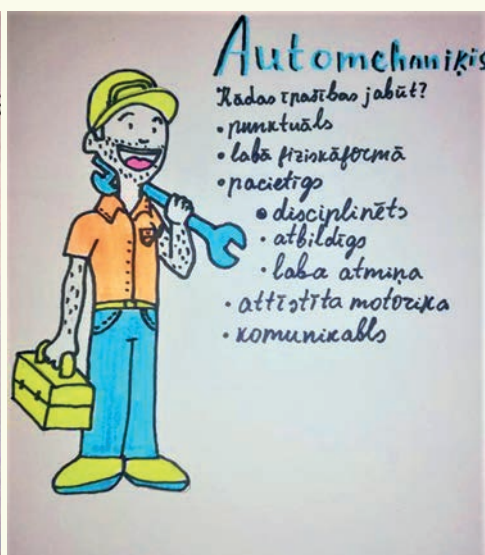 Automehniķis
Kādas īpašības jabūt?
• punktuāls
• labā fiziskāformā
• pacietīgs
• disciplinēts
• atbildīgs
• laba atmiņa
• attīstīta motorika
• komunikabls